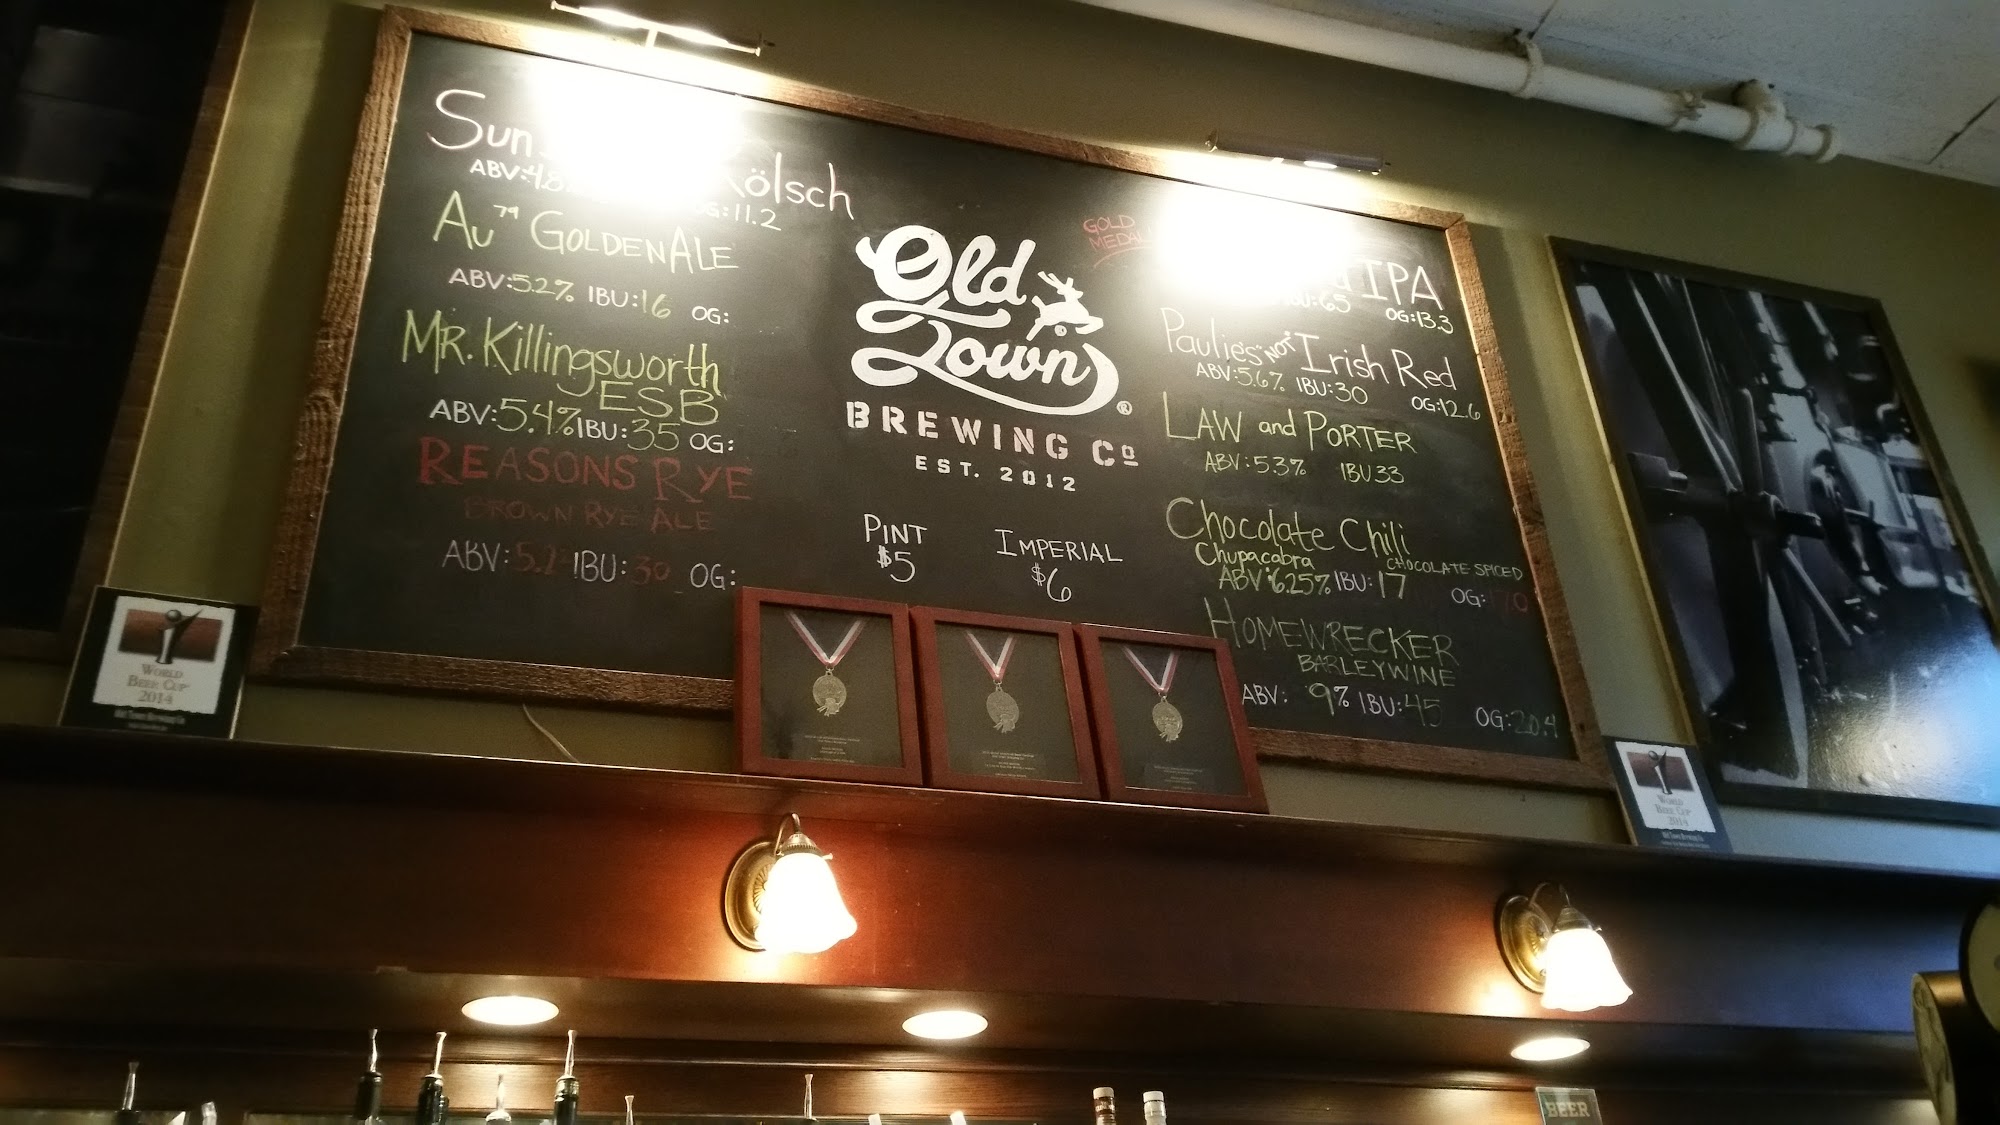 Kölsch
OG:11.2
Au 79 GOLDEN ALE
ABV:5.2% IBU:16 OG:
MR. Killingsworth
ESB
ABV:5.4% IBU:35 OG:
REASONS RYE
BROWN RYE ALE
ABV: IBU:30 OG:
Old
Town
®
BREWING Co
EST. 2012
PINT
$5
IMPERIAL
$6
GOLD
MEDAL
IPA
IBU:65 OG:13.3
Paulie's "NOT" Irish Red
ABV:5.6% IBU:30 OG:12.6
LAW and PORTER
ABV:5.3% IBU 33
Chocolate Chili
Chupacabra CHOCOLATE SPICED
ABV:6.25% IBU:17 OG:
HOMEWRECKER
BARLEYWINE
ABV: 9% IBU:45 OG:20.4
WORLD
BEER CUP
2014
Old Town Brewing Co
WORLD
BEER CUP
2014
Old Town Brewing Co
BEER